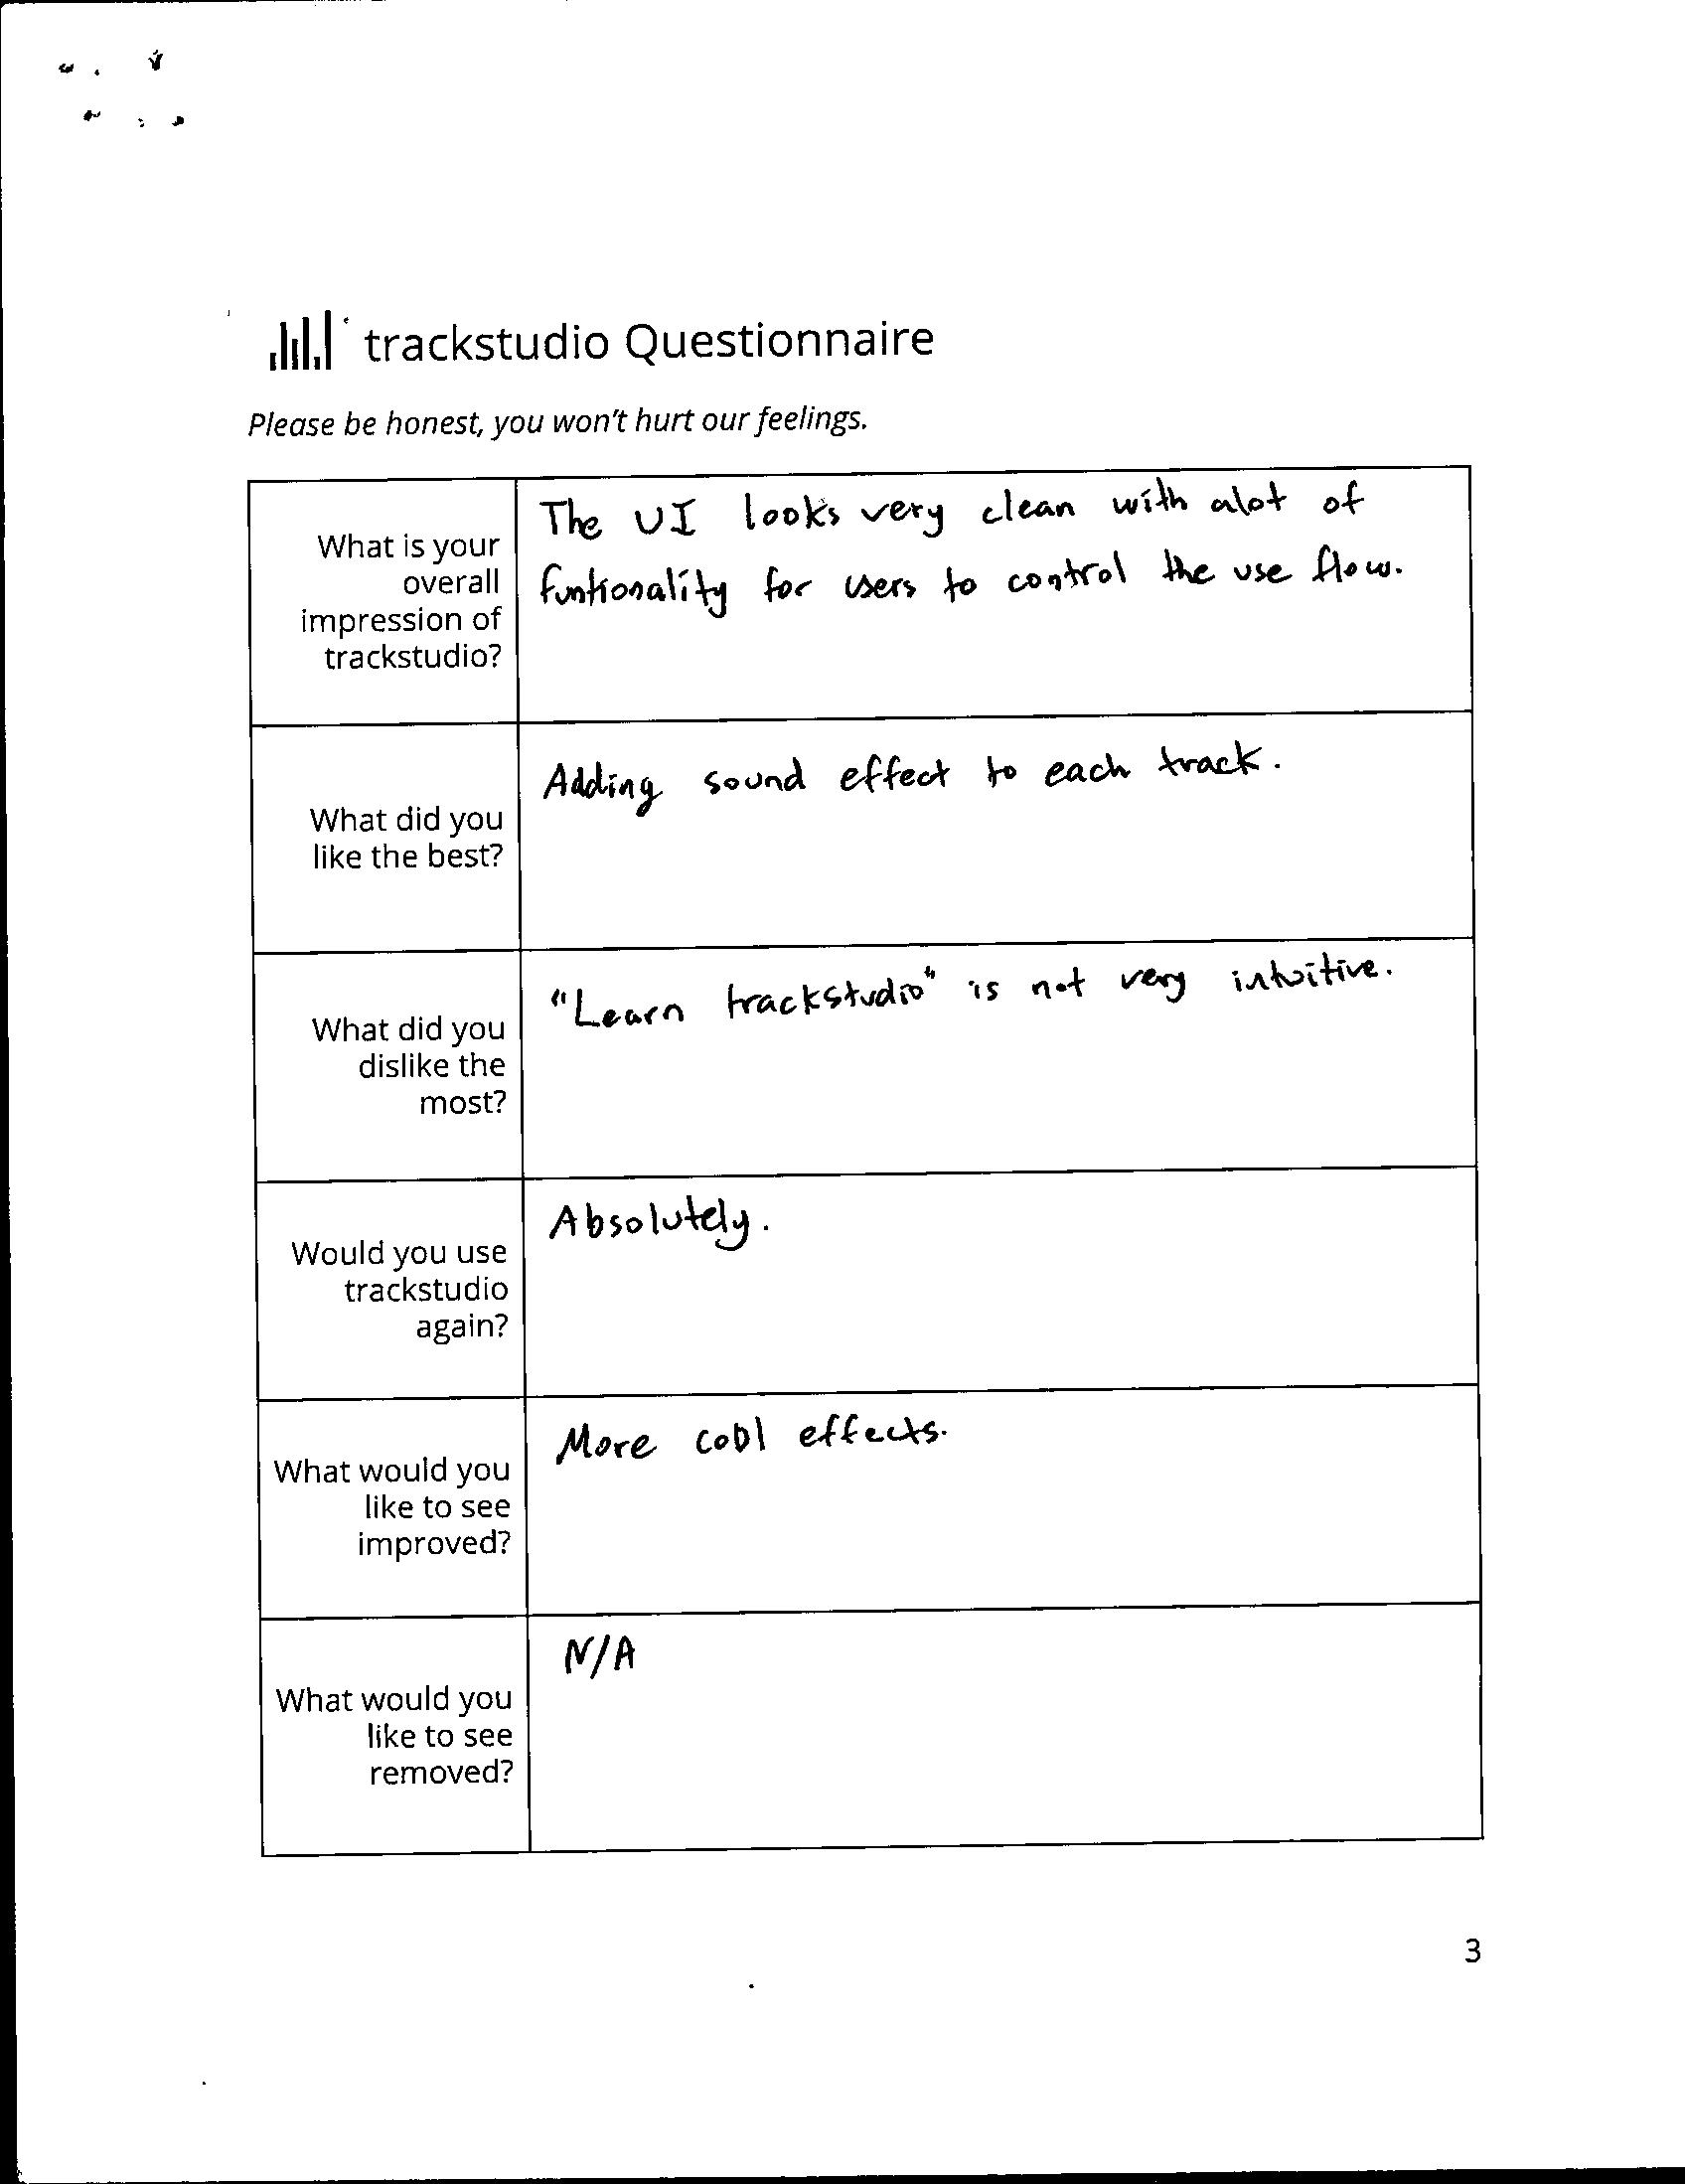 trackstudio Questionnaire
Please be honest, you won't hurt our feelings.
What is your
overall
impression of
trackstudio?
The UI looks very clean with alot of
funtionality for users to control the use flow.
What did you
like the best?
Adding sound effect to each track.
What did you
dislike the
most?
"Learn trackstudio" is not very intuitive.
Would you use
trackstudio
again?
Absolutely.
What would you
like to see
improved?
More cool effects.
What would you
like to see
removed?
N/A
3